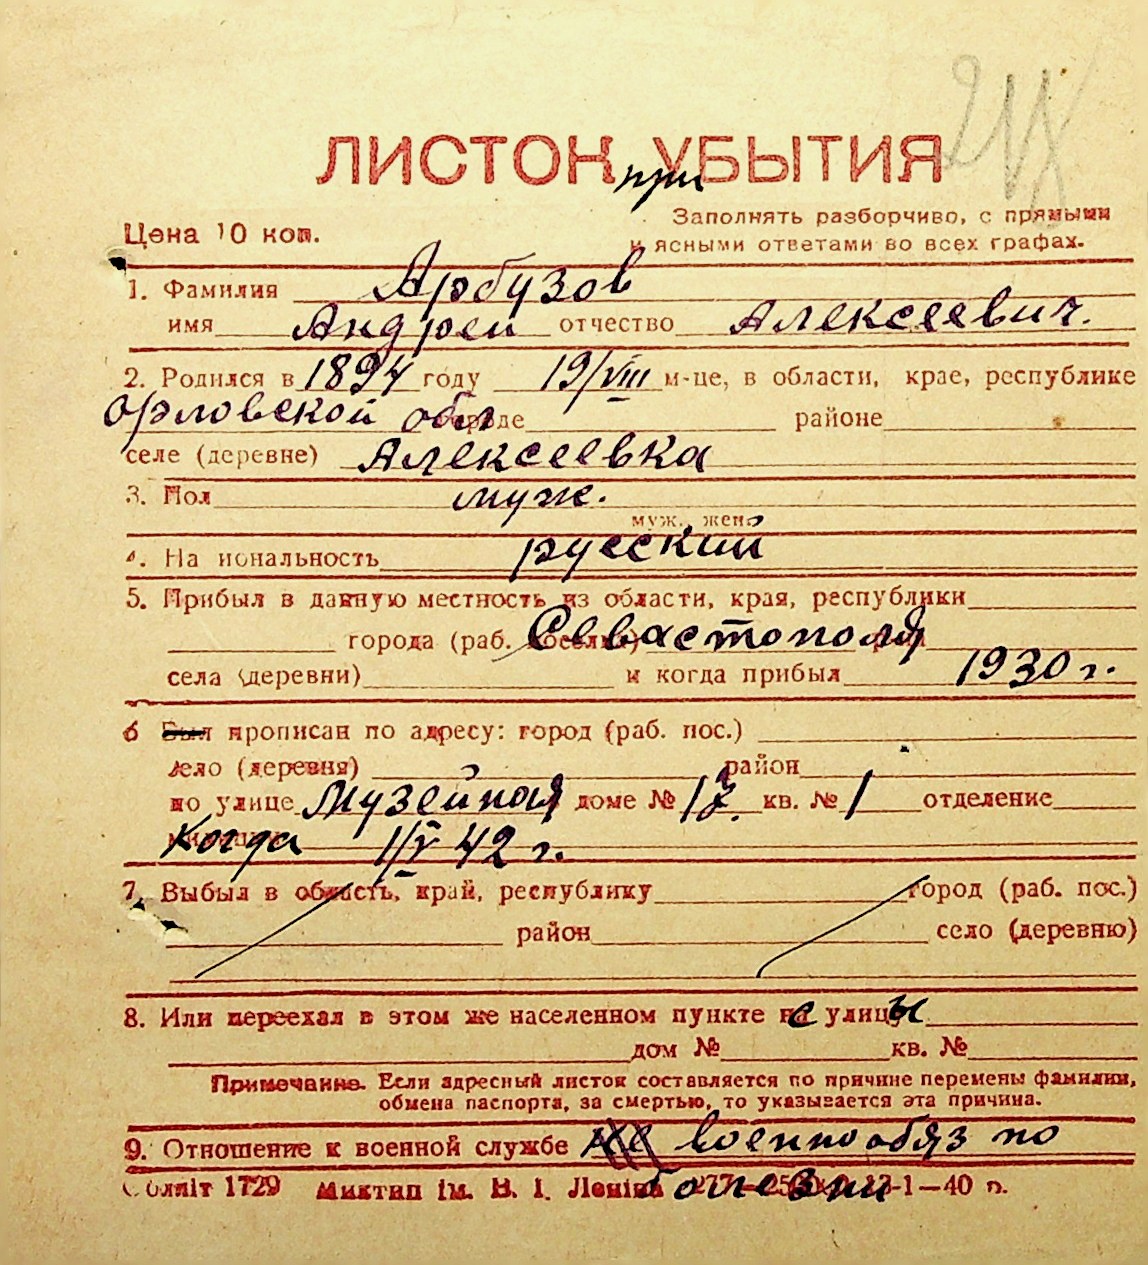 ЛИСТОК при УБЫТИЯ
Цена 10 коп.
Заполнять разборчиво, с прямыми
и ясными ответами во всех графах.
1. Фамилия Арбузов
имя Андреи отчество Алексеевич.
2. Родился в 1894 году 19/VIII м-це, в области, крае, республике
Орловской обл городе районе
селе (деревне) Алексеевка
3. Пол муж.
муж. жен.
4. На иональность русский
5. Прибыл в данную местность из области, края, республики
города (раб. поселка) Севастополя
села (деревни) и когда прибыл 1930 г.
6 Был прописан по адресу: город (раб. пос.)
село (деревня) район
по улице Музейная доме № 13. кв. № 1 отделение
милиции Когда 1/V 42 г.
7. Выбыл в область, край, республику город (раб. пос.)
район село (деревню)
8. Или переехал в этом же населенном пункте с улицы
дом № кв. №
Примечание. Если адресный листок составляется по причине перемены фамилии,
обмена паспорта, за смертью, то указывается эта причина.
9. Отношение к военной службе не военнообяз по
болезни
Облліт 1729 Миктип ім. В. І. Леніна 1—40 р.